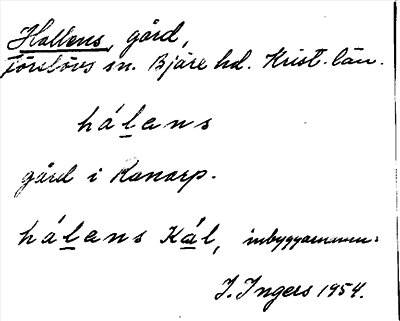 Hallens, gård,
Förslövs sn. Bjäre hd. Krist. län.
hálans
gård i Kanarp.
hálans Kál, inbyggarnamn.
I. Ingers 1954.